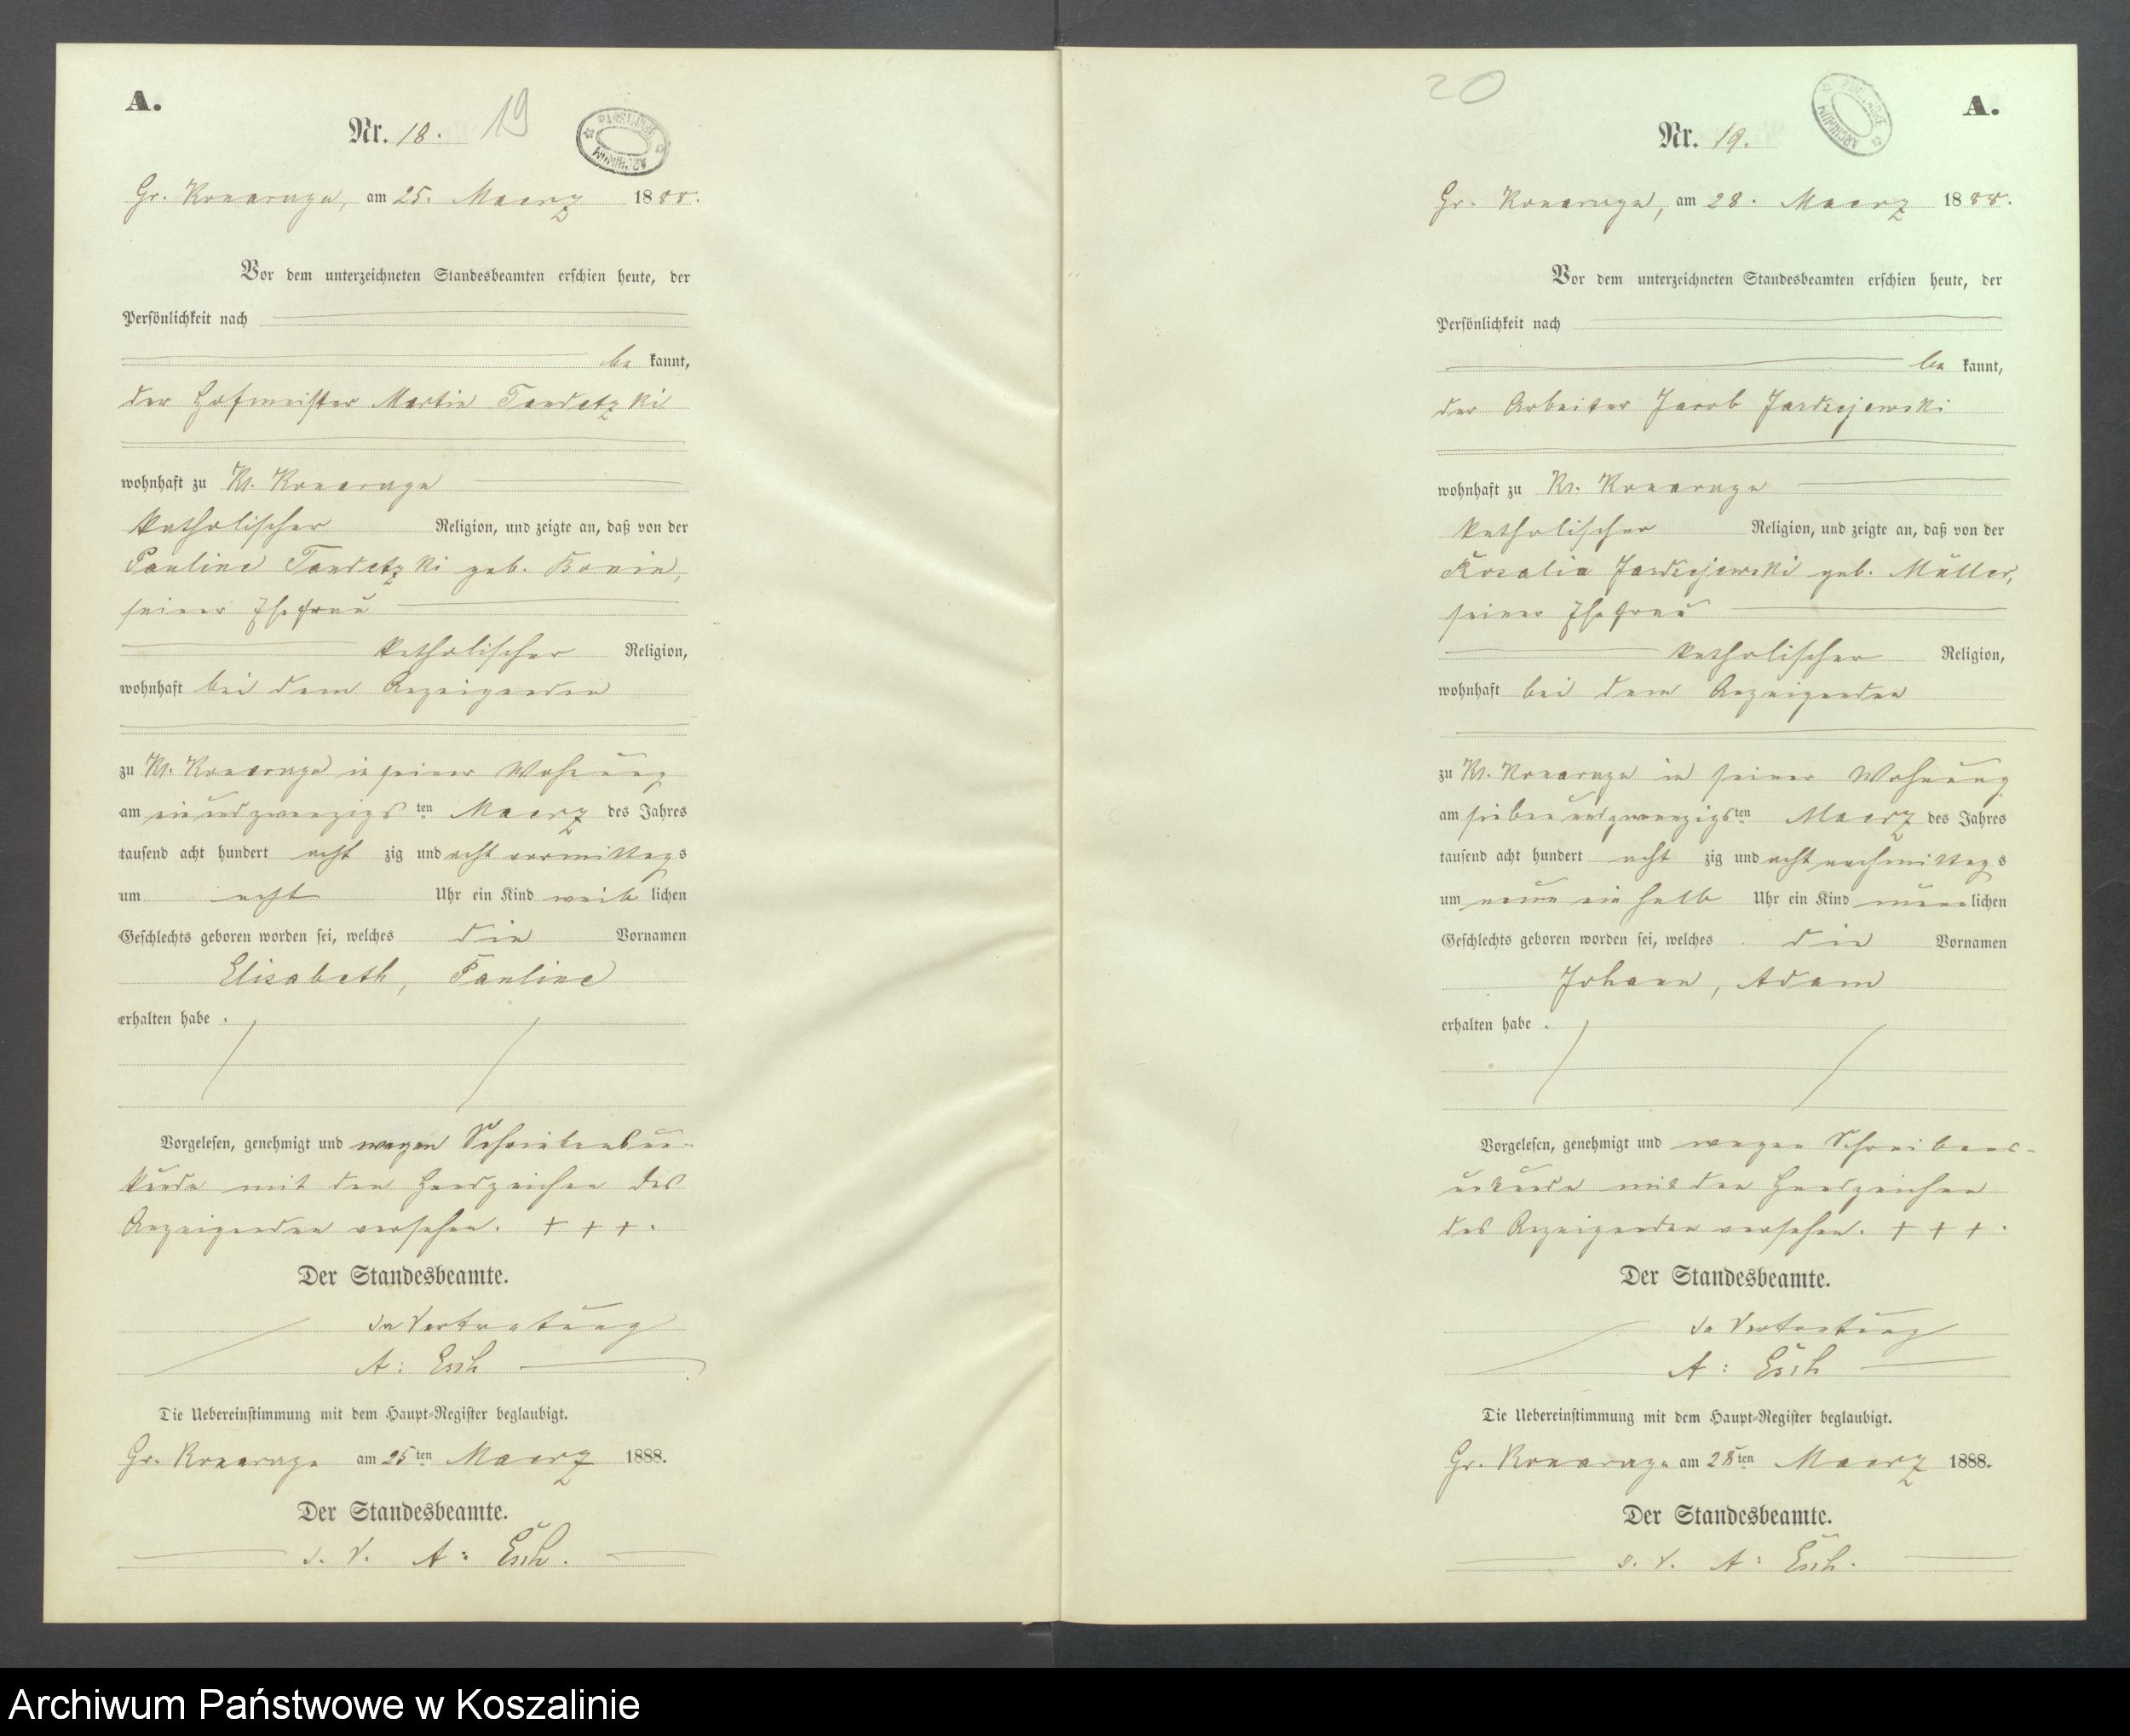 A.
Nr. 18.
19
PAŃSTWOWE ARCHIWUM
Gr. Konarzyn, am 25. Maerz 1888.
Vor dem unterzeichneten Standesbeamten erschien heute, der
Persönlichkeit nach
be kannt,
der Hofmeister Martin Tandetzki
wohnhaft zu Kl. Konarzyn
katholischer Religion, und zeigte an, daß von der
Pauline Tandetzki geb. Bonin,
seiner Ehefrau
katholischer Religion,
wohnhaft bei dem Anzeigenden
zu Kl. Konarzyn in seiner Wohnung
am einundzwanzigsten Maerz des Jahres
tausend acht hundert acht zig und acht vormittags
um acht Uhr ein Kind weib lichen
Geschlechts geboren worden sei, welches die Vornamen
Elisabeth, Pauline
erhalten habe.
Vorgelesen, genehmigt und wegen Schreibensun-
kunde mit den Handzeichen des
Anzeigenden versehen. + + +.
Der Standesbeamte.
In Vertretung
A: Esch
Die Uebereinstimmung mit dem Haupt-Register beglaubigt.
Gr. Konarzyn am 25ten Maerz 1888.
Der Standesbeamte.
I. V. A: Esch.
20
A.
Nr. 19.
PAŃSTWOWE ARCHIWUM
Gr. Konarzyn, am 28. Maerz 1888.
Vor dem unterzeichneten Standesbeamten erschien heute, der
Persönlichkeit nach
be kannt,
der Arbeiter Jacob Jardzejewski
wohnhaft zu Kl. Konarzyn
katholischer Religion, und zeigte an, daß von der
Rosalia Jardzejewski geb. Müller,
seiner Ehefrau
katholischer Religion,
wohnhaft bei dem Anzeigenden
zu Kl. Konarzyn in seiner Wohnung
am siebenundzwanzigsten Maerz des Jahres
tausend acht hundert acht zig und acht nachmittags
um neun ein halb Uhr ein Kind männlichen
Geschlechts geboren worden sei, welches die Vornamen
Johann, Adam
erhalten habe.
Vorgelesen, genehmigt und wegen Schreibens-
unkunde mit den Handzeichen
des Anzeigenden versehen. + + +.
Der Standesbeamte.
In Vertretung
A: Esch
Die Uebereinstimmung mit dem Haupt-Register beglaubigt.
Gr. Konarzyn am 28ten Maerz 1888.
Der Standesbeamte.
I. V. A: Esch.
Archiwum Państwowe w Koszalinie